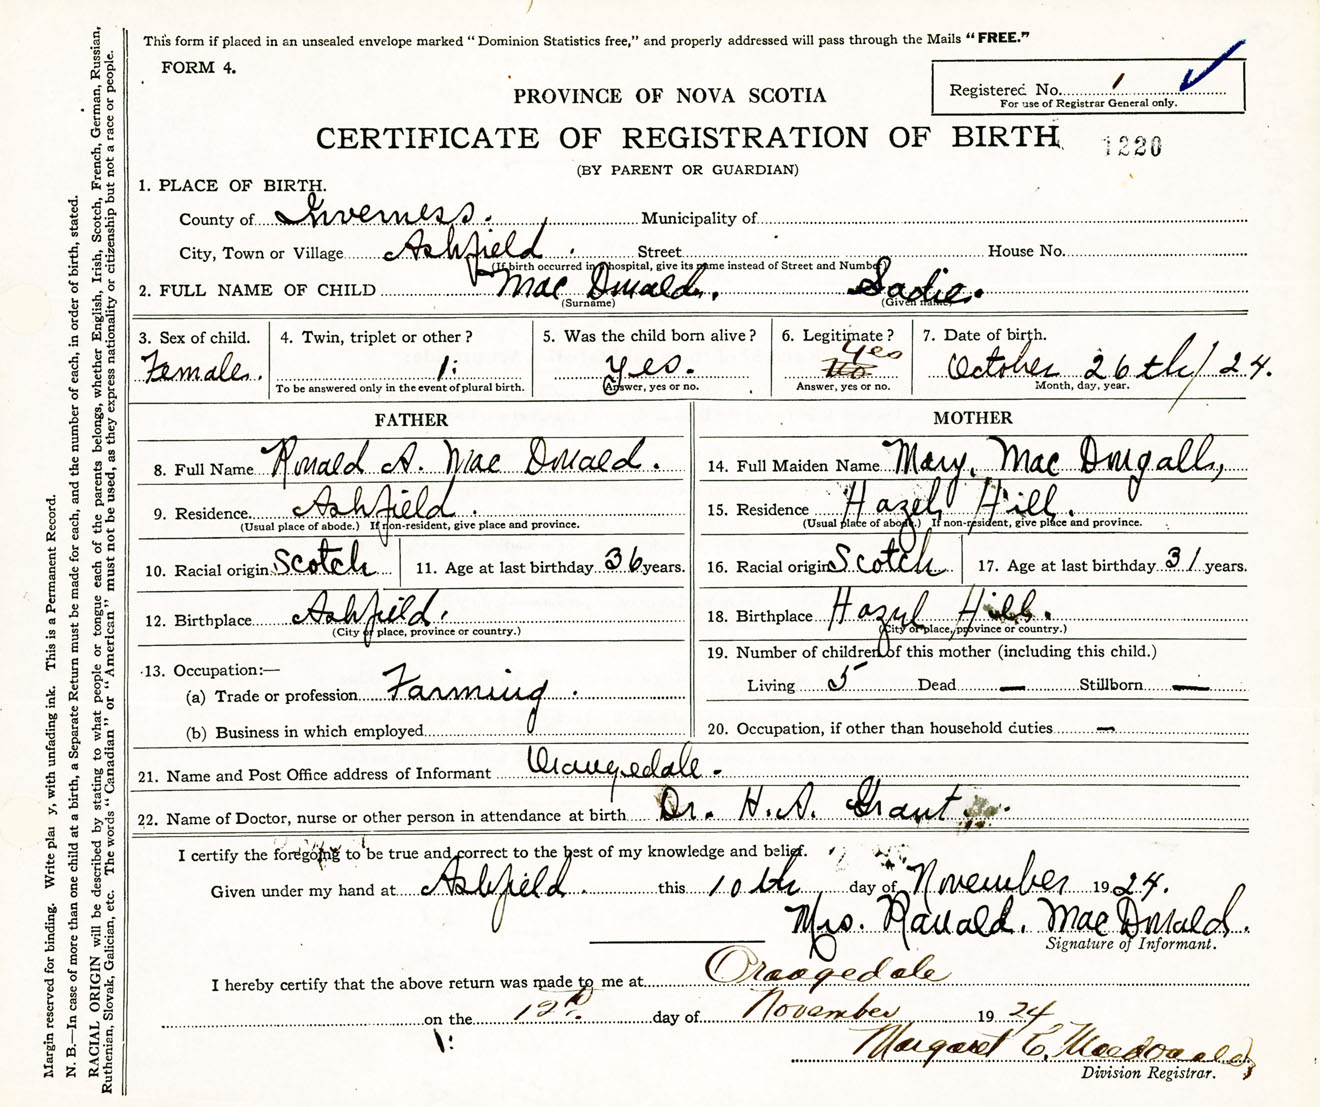 This form if placed in an unsealed envelope marked "Dominion Statistics free," and properly addressed will pass through the Mails "FREE."
FORM 4.
Registered No. 1
For use of Registrar General only.
PROVINCE OF NOVA SCOTIA
CERTIFICATE OF REGISTRATION OF BIRTH
1220
(BY PARENT OR GUARDIAN)
1. PLACE OF BIRTH.
County of Inverness. Municipality of
City, Town or Village Ashfield. Street House No.
(If birth occurred in hospital, give its name instead of Street and Number)
2. FULL NAME OF CHILD Mac Donald. Sadie.
(Surname) (Given name)
3. Sex of child. 4. Twin, triplet or other? 5. Was the child born alive? 6. Legitimate? 7. Date of birth.
Female. 1. yes. Yes October 26th/24.
To be answered only in the event of plural birth. Answer, yes or no. Answer, yes or no. Month, day, year.
FATHER
8. Full Name Ronald A. Mac Donald.
9. Residence. Ashfield.
(Usual place of abode.) If non-resident, give place and province.
10. Racial origin Scotch 11. Age at last birthday 36 years.
12. Birthplace Ashfield.
(City or place, province or country.)
13. Occupation:—
(a) Trade or profession Farming.
(b) Business in which employed
MOTHER
14. Full Maiden Name Mary, Mac Dougall,
15. Residence Hazel Hill.
(Usual place of abode.) If non-resident, give place and province.
16. Racial origin Scotch 17. Age at last birthday 31 years.
18. Birthplace Hazel Hill.
(City or place, province or country.)
19. Number of children of this mother (including this child.)
Living 5 Dead — Stillborn —
20. Occupation, if other than household duties —
21. Name and Post Office address of Informant Orangedale.
22. Name of Doctor, nurse or other person in attendance at birth Dr. H. A. Grant.
I certify the foregoing to be true and correct to the best of my knowledge and belief.
Given under my hand at Ashfield. this 10th day of November 1924.
Mrs. Ranald. Mac Donald.
Signature of Informant.
I hereby certify that the above return was made to me at Orangedale
on the 12th day of November 1924
Margaret C. Macdonald,
Division Registrar.
Margin reserved for binding. Write plai y, with unfading ink. This is a Permanent Record.
N. B.—In case of more than one child at a birth, a Separate Return must be made for each, and the number of each, in order of birth, stated.
RACIAL ORIGIN will be described by stating to what people or tongue each of the parents belongs, whether English, Irish, Scotch, French, German, Russian,
Ruthenian, Slovak, Galician, etc. The words "Canadian" or "American" must not be used, as they express nationality or citizenship but not a race or people.